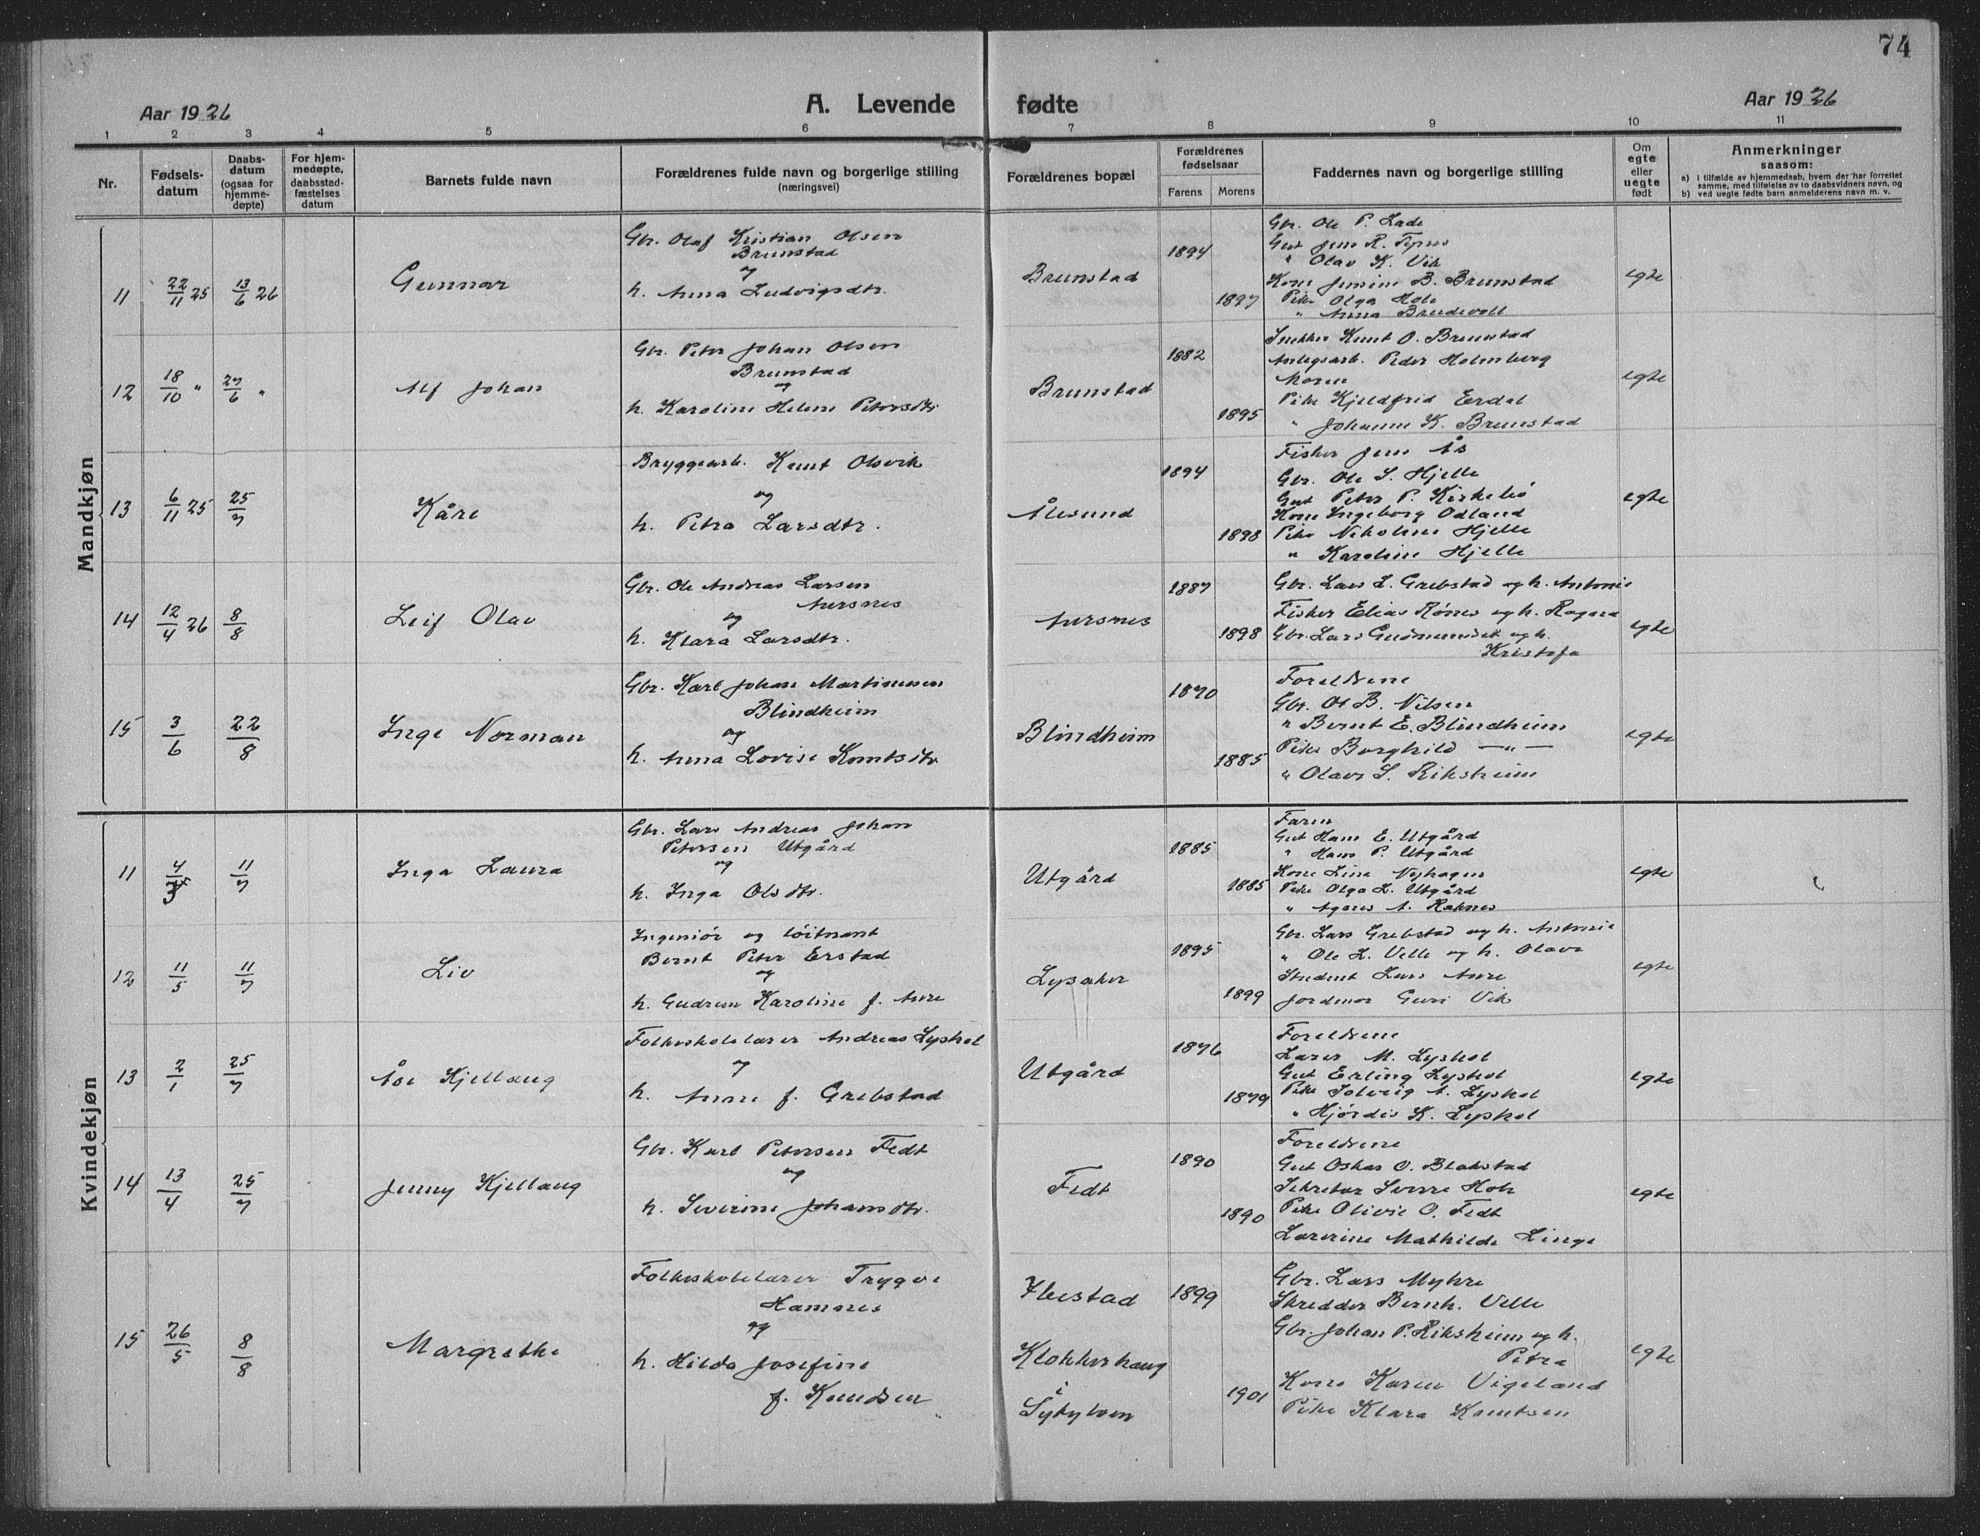 74
Aar 1926
A. Levende fødte
Aar 1926
1 2 3 4 5 6 7 8 9 10 11
Nr.
Fødsels-
datum
Daabs-
datum
(ogsaa for
hjemme-
døpte)
For hjem-
medøpte,
daabsstad-
fæstelses
datum
Barnets fulde navn
Forældrenes fulde navn og borgerlige stilling
(næringsvei)
Forældrenes bopæl
Forældrenes
fødselsaar
Farens Morens
Faddernes navn og borgerlige stilling
Om
egte
eller
uegte
født
Anmerkninger
saasom:
a) i tilfælde av hjemmedaab, hvem der har forrettet
samme, med tilføielse av to daabsvidners navn, og
b) ved uegte fødte barn anmelderens navn m. v.
Mandkjøn
11 22/11 25 13/6 26 Gunnar
Gbr. Olaf Kristian Olsen
Brunstad
og
h. Anna Ludvigsdtr.
Brunstad
1894
1897
Gbr. Ole P. Lade
Gut Jens R.
" Olav K. Vik
Kone Jensine B. Brunstad
Pike Olga Hole
" Anna Brudevoll
egte
12 18/10 " 27/6 " Alf Johan
Gbr. Peter Johan Olsen
Brunstad
og
h. Karoline Helene Petersdtr
Brunstad
1882
1895
Snekker Knut O. Brunstad
Anlegsarb. Peder Holmberg
Moren
Pike Kjeldfrid Erdal
" Johanne K. Brunstad
egte
13 6/11 25 25/7 Kåre
Bryggearb. Knut Olsvik
og
h. Petra Larsdtr.
Ålesund
1894
1898
Fisker Jens Ås
Gbr. Ole S. Hjelle
Gut Peter P. Kirkebø
Kone Ingeborg Ødland
Pike Nikoline Hjelle
" Karoline Hjelle
egte
14 12/4 26 8/8 Leif Olav
Gbr. Ole Andreas Larsen
Aursnes
og
h. Klara Larsdtr.
Aursnes
1887
1898
Gbr. Lars L. Grebstad og h. Antonie
Fisker Elias Rønes og h. Ragna
Gbr. Lars Gudmundset og h.
Kristofa
egte
15 3/6 22/8 Inge Norman
Gbr. Karl Johan Martinusen
Blindheim
og
h. Anna Lovise Knutsdtr
Blindheim
1870
1885
Foreldrene
Gbr. Ol B. Nilsen
" Bernt E. Blindheim
Pike Borghild — " —
" Olava S. Riksheim
egte
Kvindekjøn
11 4/3 11/7 Inga Laura
Gbr. Lars Andreas Johan
Petersen Utgård
og
h. Inga Olsdtr.
Utgård
1885
1885
Faren
Gut Hans E. Utgård
" Hans P. Utgård
Kone Lina Nyhagen
Pike Olga L. Utgård
" Agnes A. Røknes
egte
12 11/5 11/7 Liv
Ingeniør og løitnant
Bernt Peter Erstad
og
h. Gudrun Karoline f. Aure
Lysaker
1895
1899
Gbr. Lars Grebstad og h. Antonie
" Ole L. Velle og h. Olava
Student Lars Aure
Jordmor Guri Vik
egte
13 2/1 25/7 Åse Kjellaug
Folkeskolelærer Andreas Lyshol
og
h. Anne f. Grebstad
Utgård
1876
1879
Foreldrene
Lærer M. Lyshol
Gut Erling Lyshol
Pike Solveig A. Lyshol
" Hjørdis K. Lyshol
egte
14 13/4 25/7 Jenny Kjellaug
Gbr. Karl Petersen Fedt
og
h. Severine Johansdtr.
Fedt
1890
1890
Foreldrene
Gut Oskar O. Blakstad
Sekretær Sverre Hole
Pike Olivie O. Fedt
Lærerine Mathilde Linge
egte
15 26/5 8/8 Margrethe
Folkeskolelærer Trygve
Hamnes
og
h. Hilda Josefine
f. Knudsen
Ilestad
Klokkerhaug
i
Sykylven
1899
1901
Gbr. Lars Myhre
Skredder Bernh. Velle
Gbr. Johan P. Riksheim og h.
Petra
Kone Karen Vigeland
Pike Klara Knutsen
egte